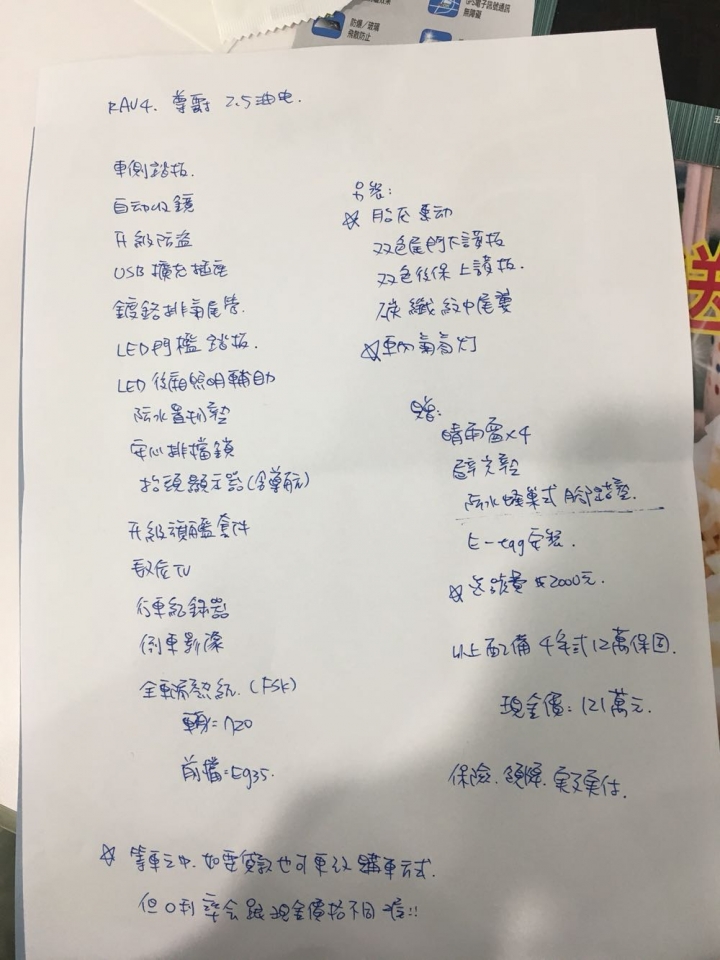 防爆/玻璃
飛散防止
GPS電子訊號通訊
無障礙
RAV4. 尊爵 2.5油电.
車側踏板.
自动收鏡
升級防盜
USB擴充插座
鍍鉻排氣尾管.
LED門檻踏板.
LED後廂照明輔助
防水置物墊
安心排檔鎖
抬頭顯示器(含導航)
升級頭艙套件
數位TV
行車紀錄器
倒車影像
全車隔熱紙. (FSK)
車身=N20
前擋=Eg35.
另裝:
☆ 胎压 重动
双色尾門下護板
双色後保上護板.
碳纖紋中尾翼
☆車內氣氛灯
贈:
晴雨窗x4
避光墊
防水蜂巢式腳踏墊.
E-tag安裝.
☆ 选號費 2000元.
以上配備 4年式12萬保固.
現金價: 121萬元.
保險.領牌.實支實付.
☆ 等車之中.如要貸款也可更改購車方式.
但0利率会跟現金價格不同喔!!
送